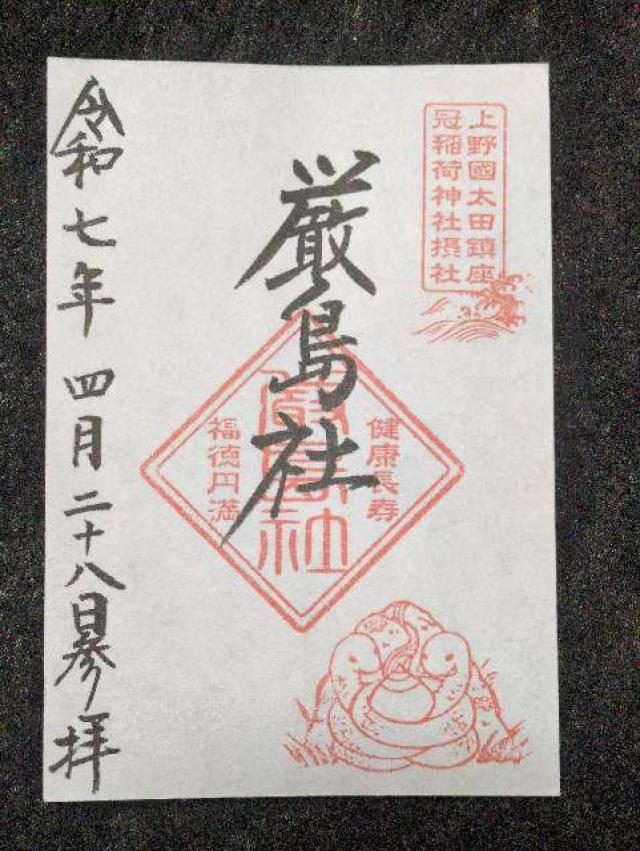 上野國太田鎮座
冠稲荷神社摂社
厳島社
健康長寿
厳島社
福徳円満
令和七年四月二十八日参拝